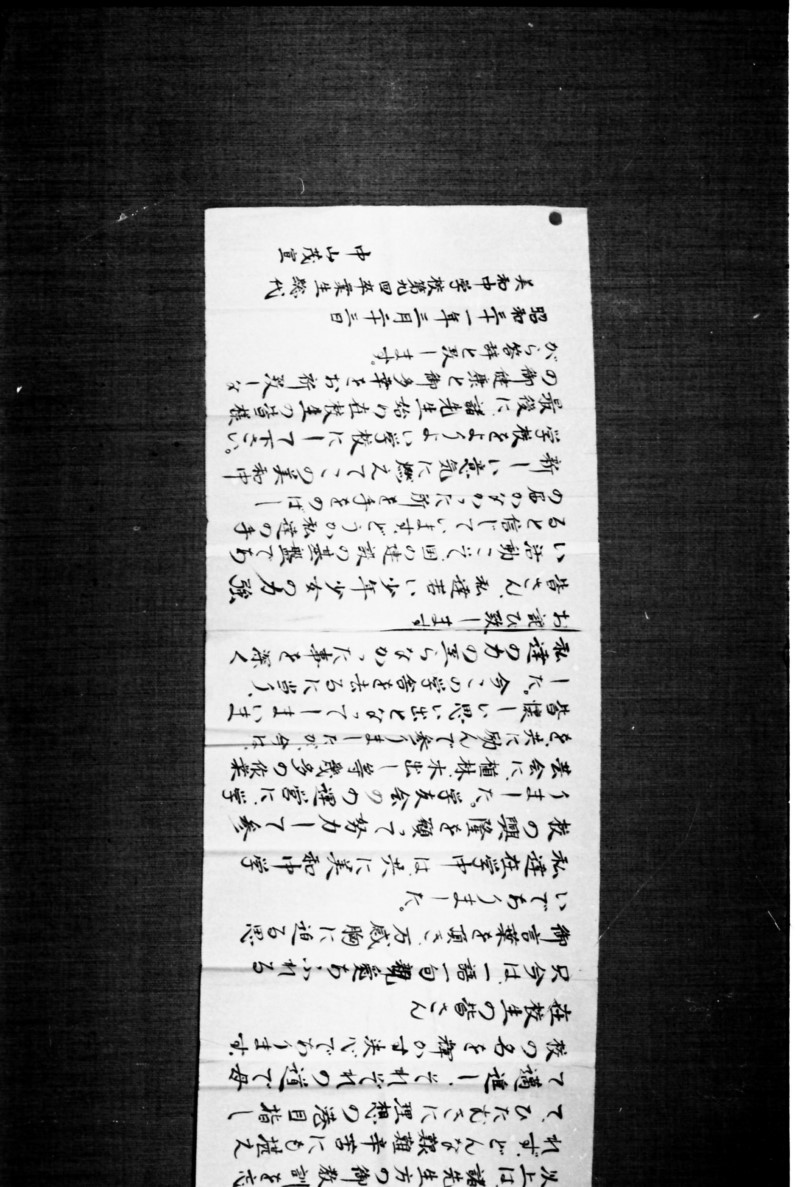 以上は、諸先生方の御教訓を忘
れず、どんな艱難辛苦にも堪え
て、ひたむきに理想の港目指し
て邁進し、それぞれの道で母
校の名を輝かす決心であります。
在校生の皆さん
只今は、一語一句親愛あふれる
御言葉を頂き、万感胸に迫る思
いでありました。
私達在学中は、共に美和中学
校の興隆を願って努力して参
りました。学友会のの運営に、学
芸会に、植林、木出し等幾多の作業
を、共に励んで参りましたが、今は、
皆懐しい思い出となってしまいま
した。今この学舎を去るに当り、
私達の力の至らなかった事を深く
お詫び致します。
皆さん、私達若い少年少女の力強
い活動こそ、国の建設の基盤であ
ると信じています。どうか私達の手
の届かなかった所を手をのばし
新しい意気に燃えてこの美和中
学校をよりよい学校にして下さい。
最後に、諸先生始め在校生の皆様
の御健康と御多幸をお祈り致しな
がら答辞と致します。
昭和三十一年三月二十三日
美和中学校第九回卒業生総代
中山茂宣